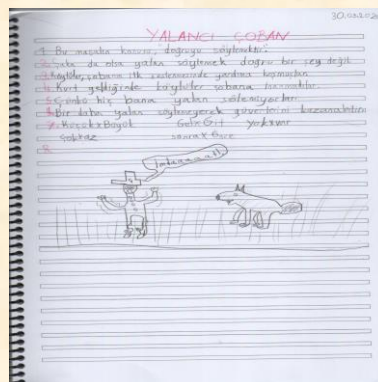 30.03.202
YALANCI ÇOBAN
1. Bu masalın konusu, "doğruyu söylemektir."
2. Şaka da olsa yalan söylemek doğru bir şey değil.
3. Köylüler, çobanın ilk seslenmesinde yardıma koşmuşlar.
4. Kurt geldiğinde köylüler çobana inanmadılar.
5. Çünkü hiç bana yalan sölemiyorlar.
6. Bir daha yalan söylemeyerek güvenlerini kazanmalıdır.
7. Küçük x Büyük Gel x Git yok x var
Çok x az sonra x önce
8.